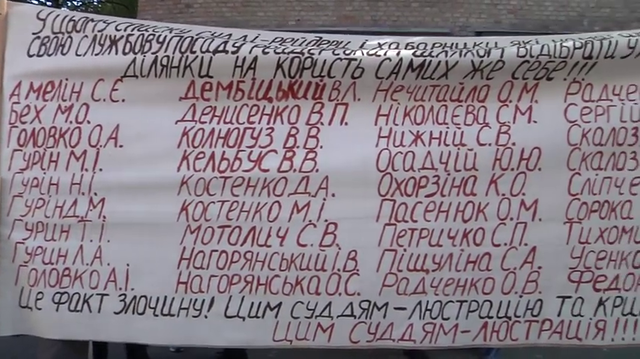 У цьому списку судді-рейдери і хабарники, які
свою службову посаду відібрати
ділянки на користь самих же себе!!!
Амелін С.Є. Дембіцький В.Л. Нечитайло О.М. Радче
Бех М.О. Денисенко В.П. Ніколаєва С.М. Сергій
Головко О.А. Колногуз В.В. Нижній С.В. Скалоз
Гурін М.І. Кельбус В.В. Осадчій Ю.Ю. Скалоз
Гурін Н.І. Костенко Д.А. Охорзіна К.О. Сліпч
Гурін Д.М. Костенко М.І. Пасенюк О.М. Сорока
Гурин Т.І. Мотолич С.В. Петричко С.П. Тихоми
Гурин Л.А. Нагорянський І.В. Піщуліна С.А. Усенко
Головко А.І. Нагорянська О.С. Радченко О.В. Федо
Це факт злочину! Цим суддям-люстрацію та кри
Цим суддям-люстрація!!!